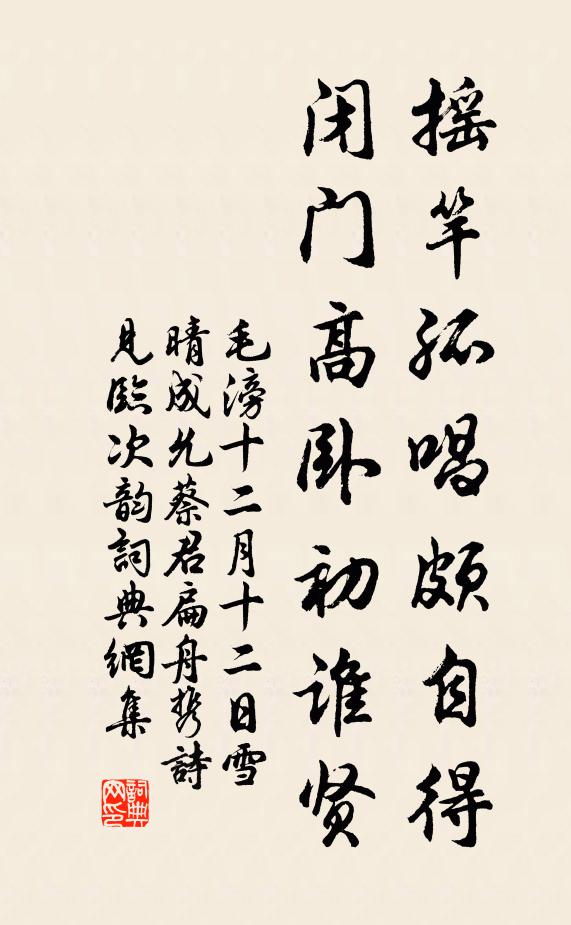 摇竿孤唱颇自得
闭门高卧初谁贤
毛滂十二月十二日雪
晴成允蔡君扁舟携詩
見臨次韵詞典網集
詞典网印